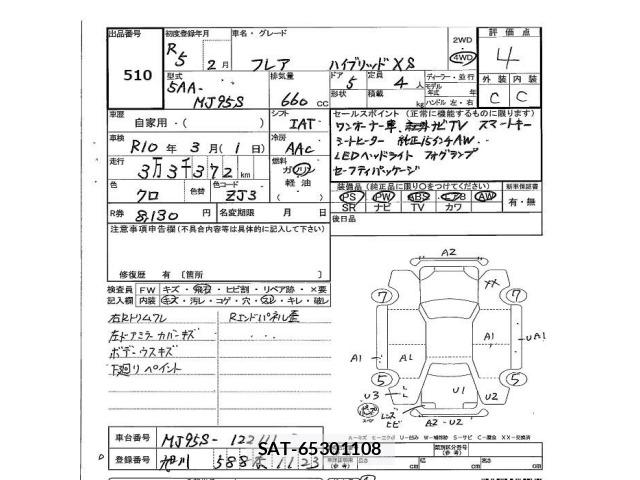 出品番号 初度登録年月 車名・グレード 2WD 評価点
510 R5 2月 フレア ハイブリッドXS 4WD 4
型式 排気量 ドア 定員 ディーラー・並行 外装 内装
5AA-MJ95S 660 cc 5 4人 モデル年式 年 C C
形状 積載 kg ハンドル 左・右
車歴 シフト セールスポイント (正常に機能するものに限ります)
自家用・( ) IAT ワンオーナー車、 ナビTV スマートキー
車検 冷房 シートヒーター 純正15インチAW
R10年 3月(1日) AAC LEDヘッドライト フォグランプ
走行 燃料 セーフティパッケージ
3万3千372 km ガソリン 軽油
色 色替 色コード 装備品(純正品に限り○をつけてください) 新車保証書
クロ ZJ3 PS PW ABS エアB AW 有・無
SR ナビ TV カワ
R券 8,130円 名変期限 月 日 後日品
注意事項申告欄(不具合内容等は具体的に記入して下さい)
修復歴 有〔箇所 〕
検査員記入欄 FW キズ・飛石・ヒビ割・リペア跡・×要
内装 キズ・汚レ・コゲ・穴・スレ・キレ・破レ
右Rトリムフレ Rエンドパネル歪
左ドアミラーカバーキズ
ボデーウスキズ
下廻りペイント
A2
XX
7 7
A1 A1 A1 UA1
5 5
U3 U1 U2
レンズヒビ A2-U2
A-キズ U-凹み W-補修跡 S-サビ C-腐食 XX-交換済
車台番号 MJ95S-122111
SAT-65301108
登録番号 旭川 588 1123